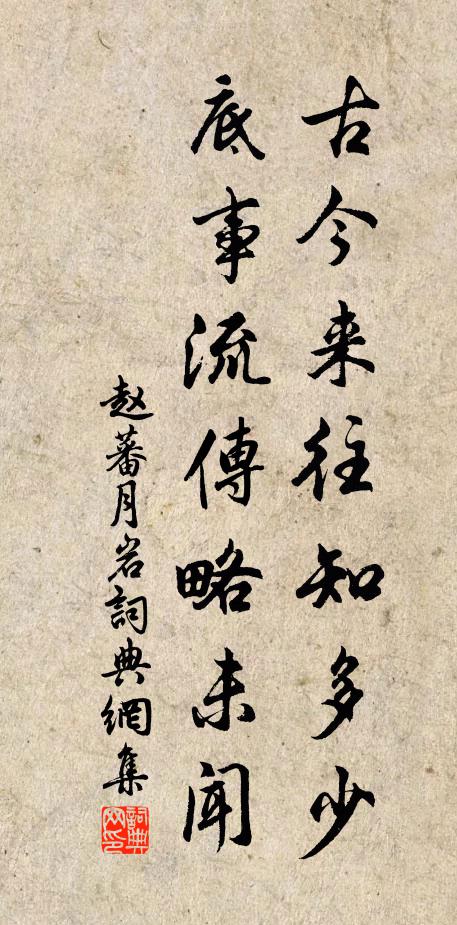 古今来往知多少
底事流傳略未聞
赵蕃月岩詞典網集
詞典网印